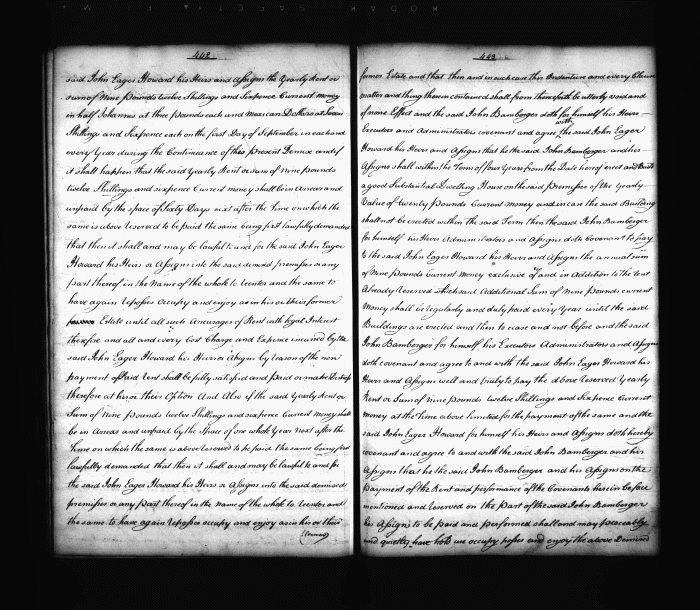 442
said John Eager Howard his Heirs and Assigns the Yearly Rent or
sum of Nine Pounds twelve Shillings and Sixpence Current money
in half Johannes at three pounds each and Mexican Dollars at Seven
Shillings and Sixpence each on the first Day of September in each and
every Year during the Continuence of this present Demise and if
it shall happen that the said Yearly Rent or sum of nine pounds
twelve Shillings and sixpence Current money shall be in Arrear and
unpaid by the space of Sixty Days next after the time on which the
same is above reserved to be paid the same being first lawfully demanded
that then it shall and may be lawful to and for the said John Eager
Howard his Heirs or Assigns into the said demised premisses or any
part thereof in the Name of the whole to Reenter and the same to
have again repossess occupy and enjoy as in his or their former
Estate until all such Arrearages of Rent with legal Interest
therefore and all and every Cost Charge and Expence incurred by the
said John Eager Howard his Heirs or Assigns by reason of the non
payment of said rent shall be fully satisfied and paid or make Distress
therefore at his or their Option And Also if the said Yearly Rent or
Sum of Nine Pounds twelve Shillings and sixpence Current Money shall
be in Arrear and unpaid by the Space of one whole Year next after the
time on which the same is above reserved to be paid the same being first
lawfully demanded that then it shall and may be lawful to and for
the said John Eager Howard his Heirs or Assigns into the said demised
premisses or any part thereof in the name of the whole to Reenter and
the same to have again repossess occupy and enjoy as in his or their
(former)
443
former Estate and that then and in such case this Indenture and every Clause
matter and thing therein contained shall from thenceforth be utterly void and
of none Effect and the said John Bamberger doth for himself his Heirs
Executors and Administrators covenant and agree with the said John Eager
Howard his Heirs and Assigns that he the said John Bamberger and his
Assigns shall within the Term of four Years from the Date hereof erect and Build
a good Substantial Dwelling House on the said premisses of the Yearly
Value of twenty pounds Current money and in case the said Building
shall not be erected within the said Term then the said John Bamberger
for himself his Heirs Administrators and Assigns doth Covenant to pay
to the said John Eager Howard his Heirs and Assigns the annual sum
of Nine Pounds Current Money exclusive of and in Addition to the rent
Already Reserved which said Additional Sum of Nine Pounds current
Money shall be regularly and duly paid every Year until the said
Buildings are erected and then to cease and not before and the said
John Bamberger for himself his Executors Administrators and Assigns
doth covenant and agree to and with the said John Eager Howard his
Heirs and Assigns well and truly to pay the above reserved Yearly
Rent or Sum of Nine pounds twelve Shillings and Sixpence Current
Money at the time above limited for the payment of the same and the
said John Eager Howard for himself his Heirs and Assigns doth hereby
covenant and agree to and with the said John Bamberger and his
Assigns that he the said John Bamberger and his Assigns on the
Payment of the Rent and performance of the Covenants herein before
mentioned and reserved on the Part of the said John Bamberger
his Assigns to be paid and performed shall and may peaceably
and quietly have hold use occupy posses and enjoy the above Demised